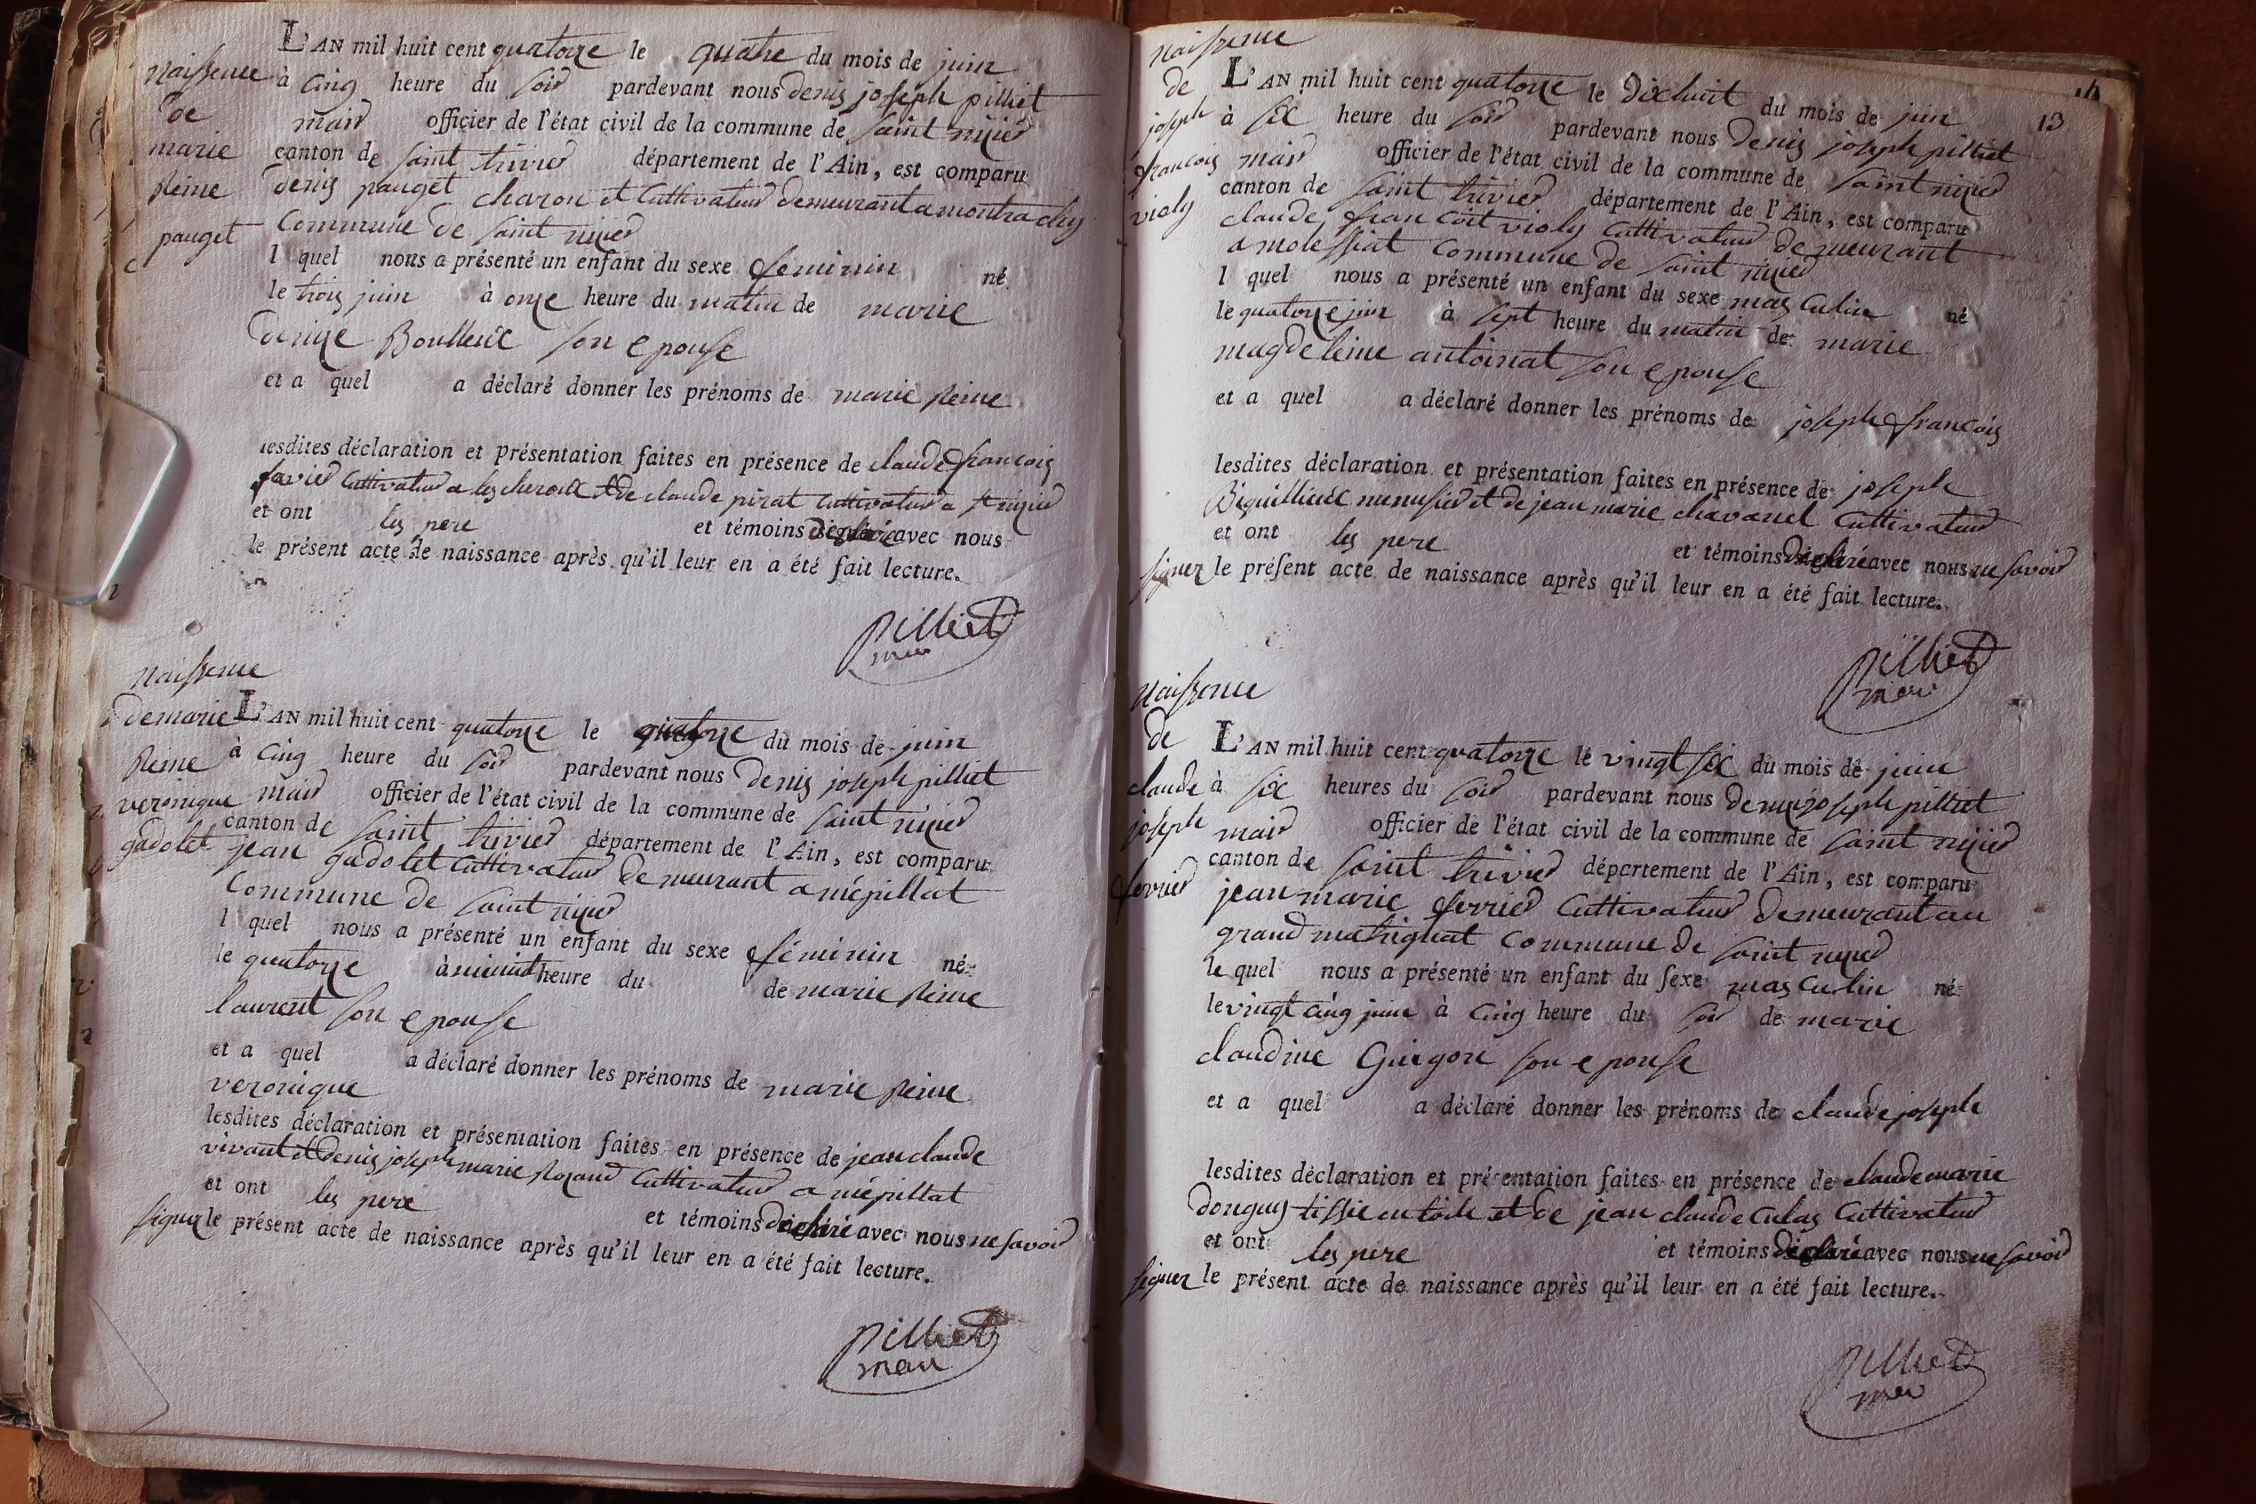 naissence
de
marie
Reine
pauget
L'AN mil huit cent quatorze le quatre du mois de juin
à cinq heure du soir pardevant nous denis joseph pilliet
mair officier de l'état civil de la commune de saint nizier
canton de saint trivier département de l'Ain, est comparu
denis pauget charon et cultivateur demeurant a montrachy
commune de saint nizier
l quel nous a présenté un enfant du sexe feminin né
le trois juin à onze heure du matin de marie
denize Boulleux son epouse
et a quel a déclaré donner les prénoms de marie Reine
lesdites déclaration et présentation faites en présence de claude francois
cultivateur a les cheroux et de claude pirat cultivateur a st nizier
et ont les pere et témoins avec nous
le présent acte de naissance après qu'il leur en a été fait lecture.
pilliet
mair
naissence
de marie
Reine
veronique
gadolet
L'AN mil huit cent quatorze le quatorze du mois de juin
à cinq heure du soir pardevant nous denis joseph pilliet
mair officier de l'état civil de la commune de saint nizier
canton de saint trivier département de l'Ain, est comparu
jean gadolet cultivateur demeurant a mépillat
commune de saint nizier
l quel nous a présenté un enfant du sexe féminin né
le quatorze à minuit heure du de marie Reine
laurent son epouse
et a quel a déclaré donner les prénoms de marie Reine
veronique
lesdites déclaration et présentation faites en présence de jean claude
vivant et denis joseph marie Rozand cultivateur a mépillat
et ont les pere et témoins déclaré avec nous ne savoir
signer le présent acte de naissance après qu'il leur en a été fait lecture.
pilliet
mair
13
naissence
de
joseph
francois
violy
L'AN mil huit cent quatorze le dixhuit du mois de juin
à six heure du soir pardevant nous denis joseph pilliet
mair officier de l'état civil de la commune de saint nizier
canton de saint trivier département de l'Ain, est comparu
claude francoit violy cultivateur demeurant
a molessiat commune de saint nizier
l quel nous a présenté un enfant du sexe masculin né
le quatorze juin à sept heure du matin de marie
magdeleine antoinat son epouse
et a quel a déclaré donner les prénoms de joseph francois
lesdites déclaration et présentation faites en présence de joseph
Biguilliéux menusier et de jean marie chavanel cultivateur
et ont les pere et témoins déclaré avec nous ne savoir
signer le présent acte de naissance après qu'il leur en a été fait lecture.
pilliet
mair
naissence
de
claude
joseph
ferrier
L'AN mil huit cent quatorze le vingt six du mois de juin
à six heures du soir pardevant nous denis joseph pilliet
mair officier de l'état civil de la commune de saint nizier
canton de saint trivier département de l'Ain, est comparu
jean marie ferrier cultivateur demeurant au
grand matrignat commune de saint nizier
le quel nous a présenté un enfant du sexe masculin né
le vingt cinq juin à cinq heure du soir de marie
claudine Guigon son epouse
et a quel a déclaré donner les prénoms de claude joseph
lesdites déclaration et présentation faites en présence de claude marie
donguy tissie en toile et de jean claude culas cultivateur
et ont les pere et témoins déclaré avec nous ne savoir
signer le présent acte de naissance après qu'il leur en a été fait lecture.
pilliet
mair